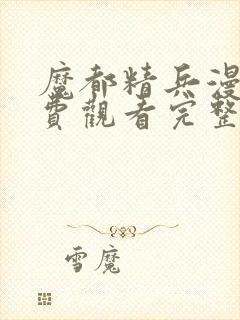 魔都精兵漫
費觀看完整
雪魔